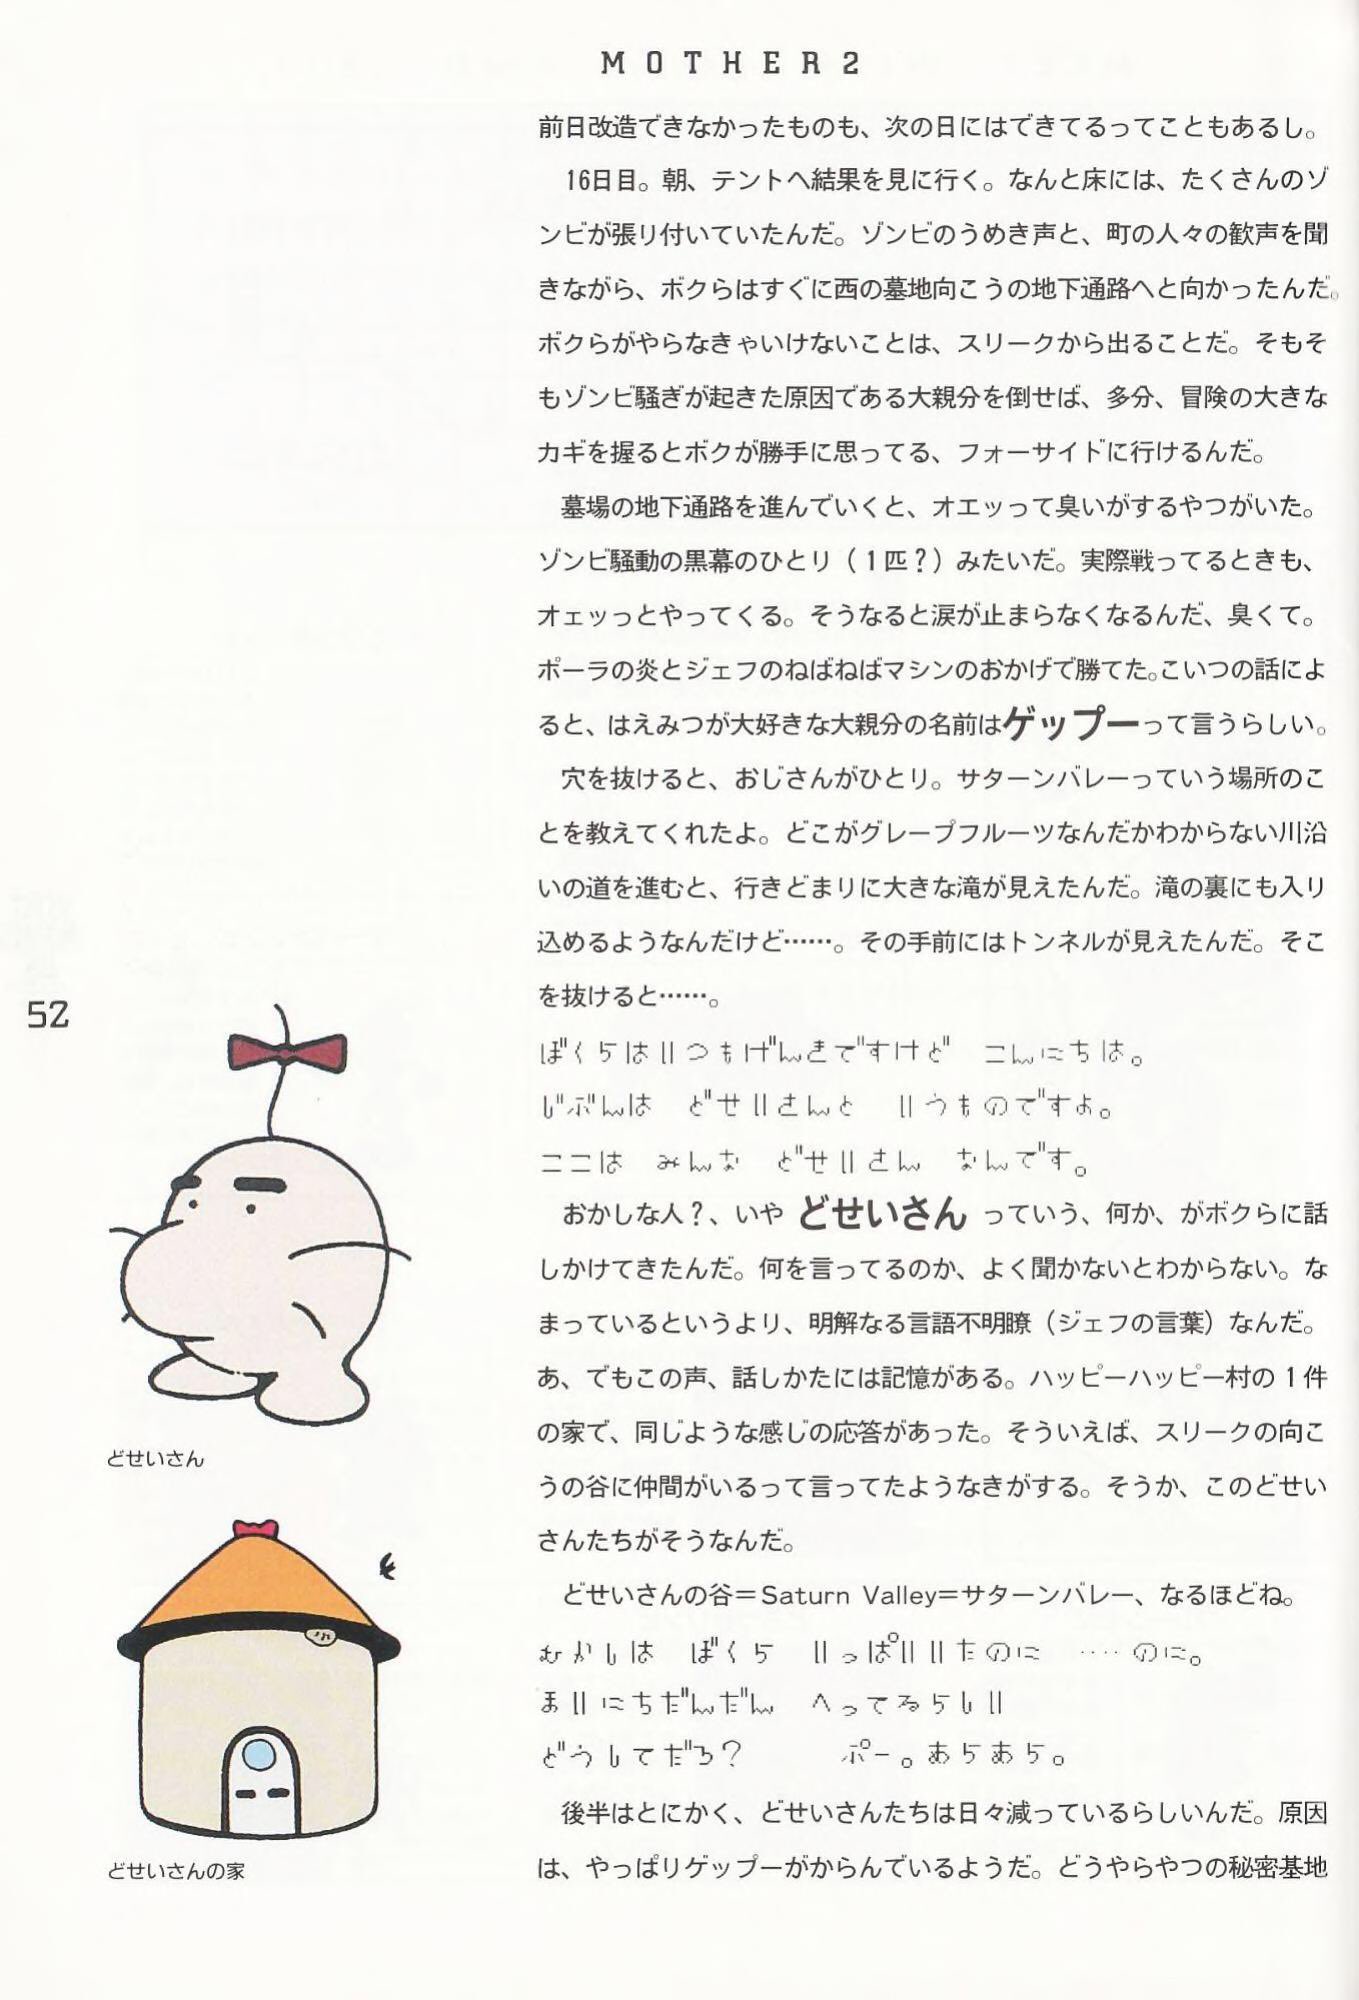 MOTHER2
前日改造できなかったものも、次の日にはできてるってこともあるし。
16日目。朝、テントへ結果を見に行く。なんと床には、たくさんのゾ
ンビが張り付いていたんだ。ゾンビのうめき声と、町の人々の歓声を聞
きながら、ボクらはすぐに西の墓地向こうの地下通路へと向かったんだ。
ボクらがやらなきゃいけないことは、スリークから出ることだ。そもそ
もゾンビ騒ぎが起きた原因である大親分を倒せば、多分、冒険の大きな
カギを握るとボクが勝手に思ってる、フォーサイドに行けるんだ。
墓場の地下通路を進んでいくと、オエッって臭いがするやつがいた。
ゾンビ騒動の黒幕のひとり（1匹？）みたいだ。実際戦ってるときも、
オェッっとやってくる。そうなると涙が止まらなくなるんだ、臭くて。
ポーラの炎とジェフのねばねばマシンのおかげで勝てた。こいつの話によ
ると、はえみつが大好きな大親分の名前はゲップーって言うらしい。
穴を抜けると、おじさんがひとり。サターンバレーっていう場所のこ
とを教えてくれたよ。どこがグレープフルーツなんだかわからない川沿
いの道を進むと、行きどまりに大きな滝が見えたんだ。滝の裏にも入り
込めるようなんだけど……。その手前にはトンネルが見えたんだ。そこ
を抜けると……。
ぼくらはいつもげんきですけど　こんにちは。
じぶんは　どせいさんと　いうものですよ。
ここは　みんな　どせいさん　なんです。
おかしな人？、いや どせいさん っていう、何か、がボクらに話
しかけてきたんだ。何を言ってるのか、よく聞かないとわからない。な
まっているというより、明解なる言語不明瞭（ジェフの言葉）なんだ。
あ、でもこの声、話しかたには記憶がある。ハッピーハッピー村の1件
の家で、同じような感じの応答があった。そういえば、スリークの向こ
うの谷に仲間がいるって言ってたようなきがする。そうか、このどせい
さんたちがそうなんだ。
どせいさんの谷＝Saturn Valley＝サターンバレー、なるほどね。
むかしは　ぼくら　いっぱいいたのに　‥‥のに。
まいにちだんだん　へってるらしい
どうしてだろ？　　ポー。あらあら。
後半はとにかく、どせいさんたちは日々減っているらしいんだ。原因
は、やっぱりゲップーがからんでいるようだ。どうやらやつの秘密基地
52
どせいさん
どせいさんの家